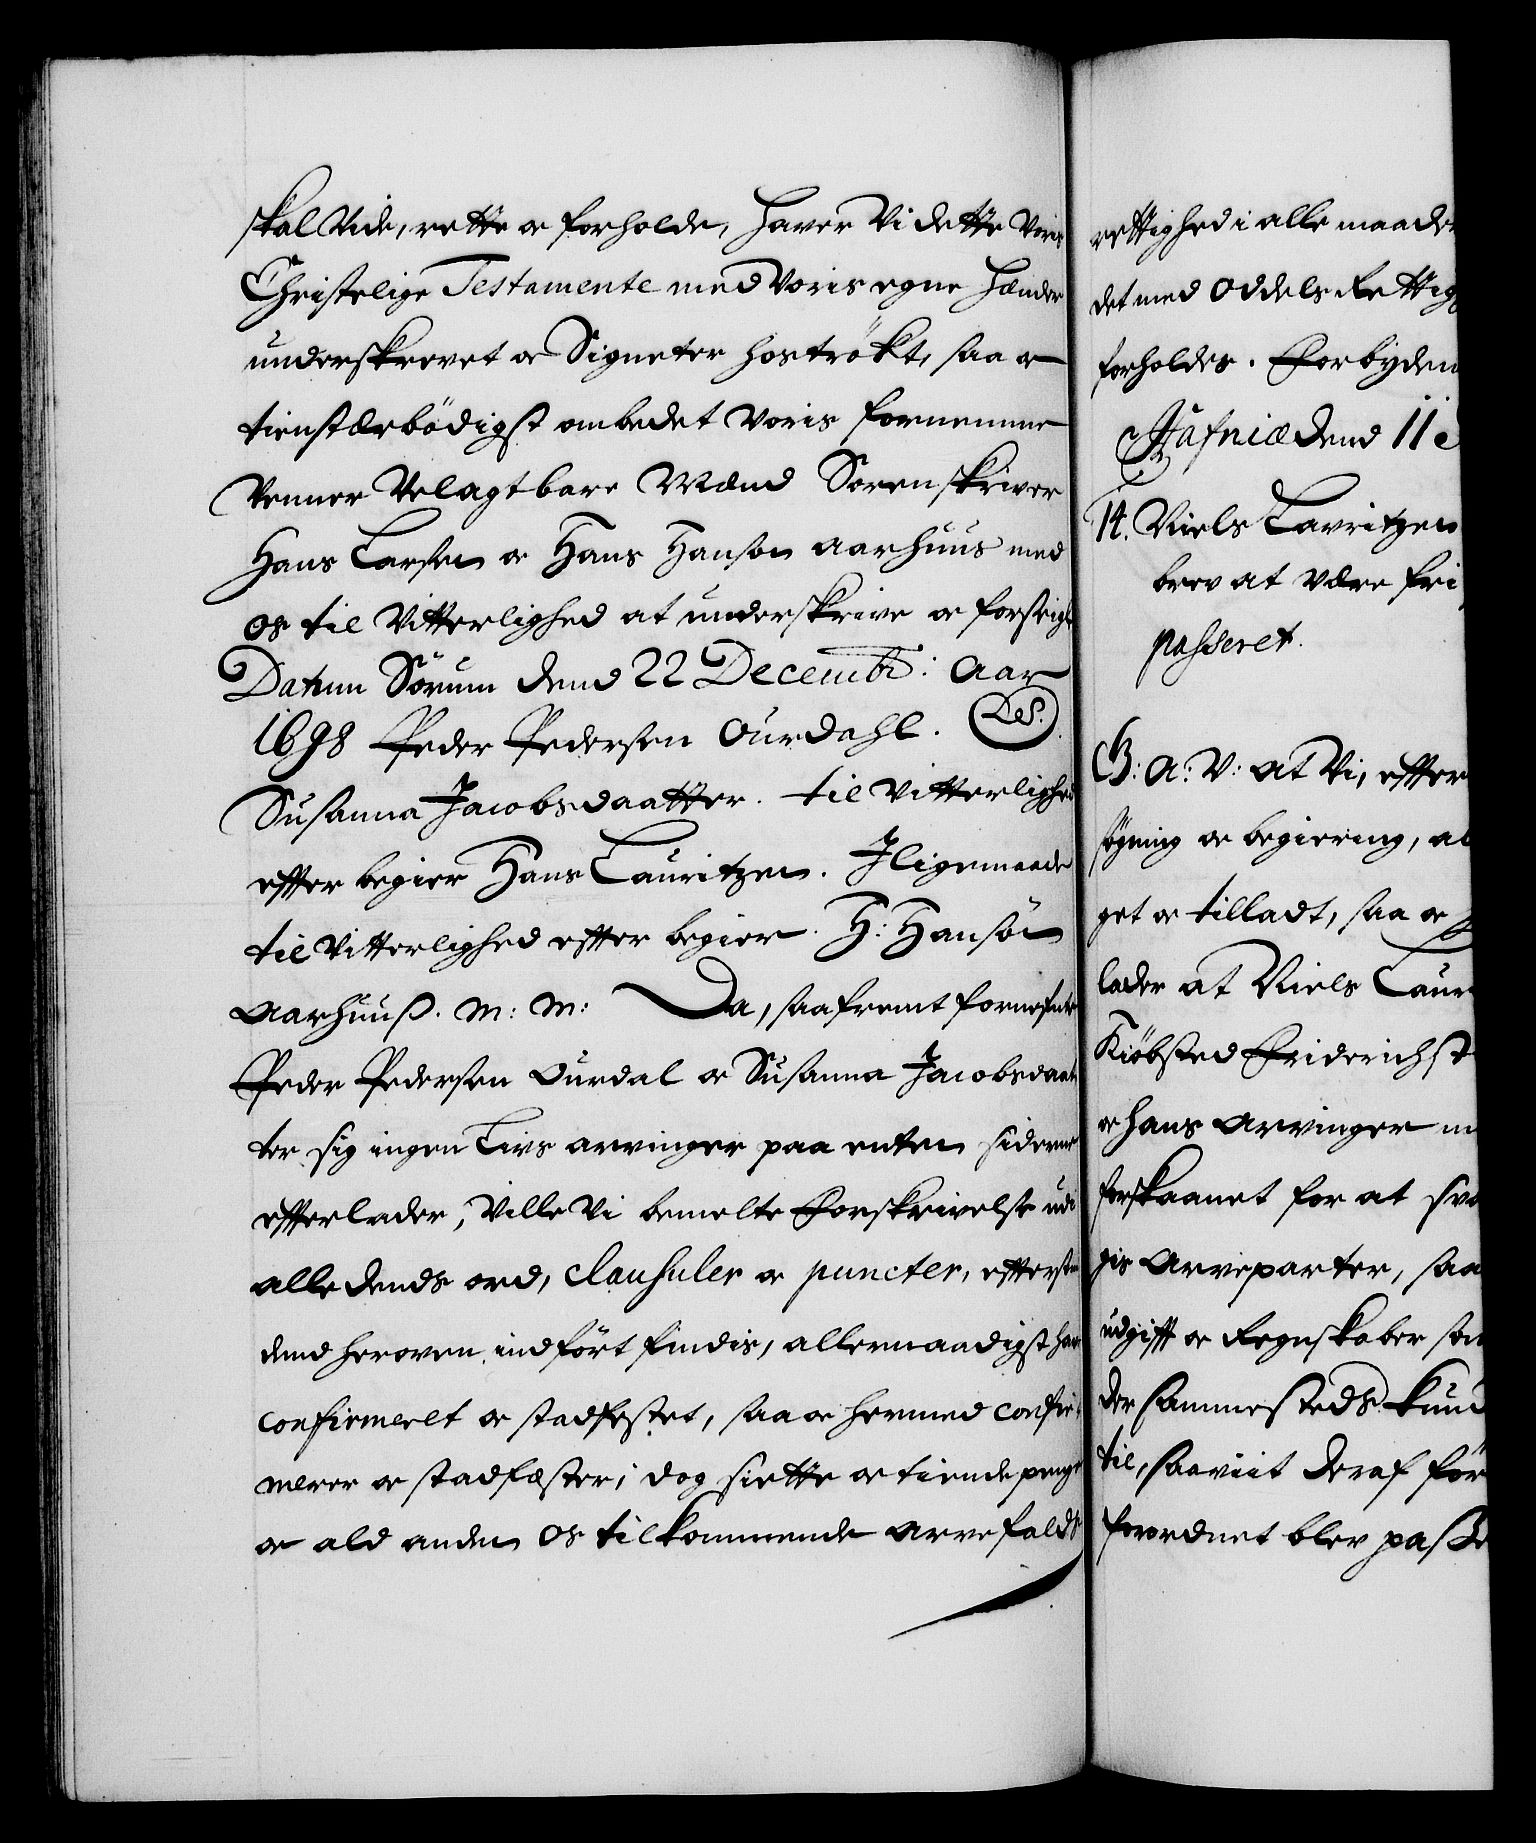 skal vide, rette og forholde, haver Vi dette voris
Christelige Testamente med voris egne Hænder
underskrevet og Signeter hoströkt, saa og
tienstærbödigst ombedet voris fornemme
Venner Velagtbare Mænd Sorenskriver
Hans Larsen og Hans Hansen Aarhuus med
os til Vitterlighed at underskrive og forseigle
Datum Sörum dend 22 Decembr: Aar
1698 Peder Pedersen Ourdahl. L.S.
Susanna Jacobsdaatter. til Vitterlighed
effter begier Hans Lauritzen. Jligemaade
til Vitterlighed effter begier. H: Hansön
Aarhuuß. M: M: Da, saafremt fornefnte
Peder Pedersen Ourdal og Susanna Jacobsdaat
ter sig ingen Livs arvinger paa enten siderne
effterlader, Ville Vi bemelte Forskrivelse udi
alle dends ord, clausuler og puncter, eftersom
dend heroven indfört findis, allernaadigst have
confirmeret og stadfestet, saa og hermed confir¬
merer og stadfæster; dog siette og tiende penge
og ald anden os tilkommende Arvefalds
rettighed i alle maader
det med Oddels Rettig
forholdes. Forbyden
Hafniæ dend 11
14. Niels Lavritzen
brev at være fri
passeret.
G: A: V: at Vi, effter
søgning og begiering, al
get og tilladt, saa og
lader at Niels Laur
Kiöbsted Friderichst
og hans Arvinger m
forskaanet for at sva
gis Arveparter, saa
udgifft og Regnskaber som
der sammesteds kund
til, saaviit deraf för
forordnet blev passe